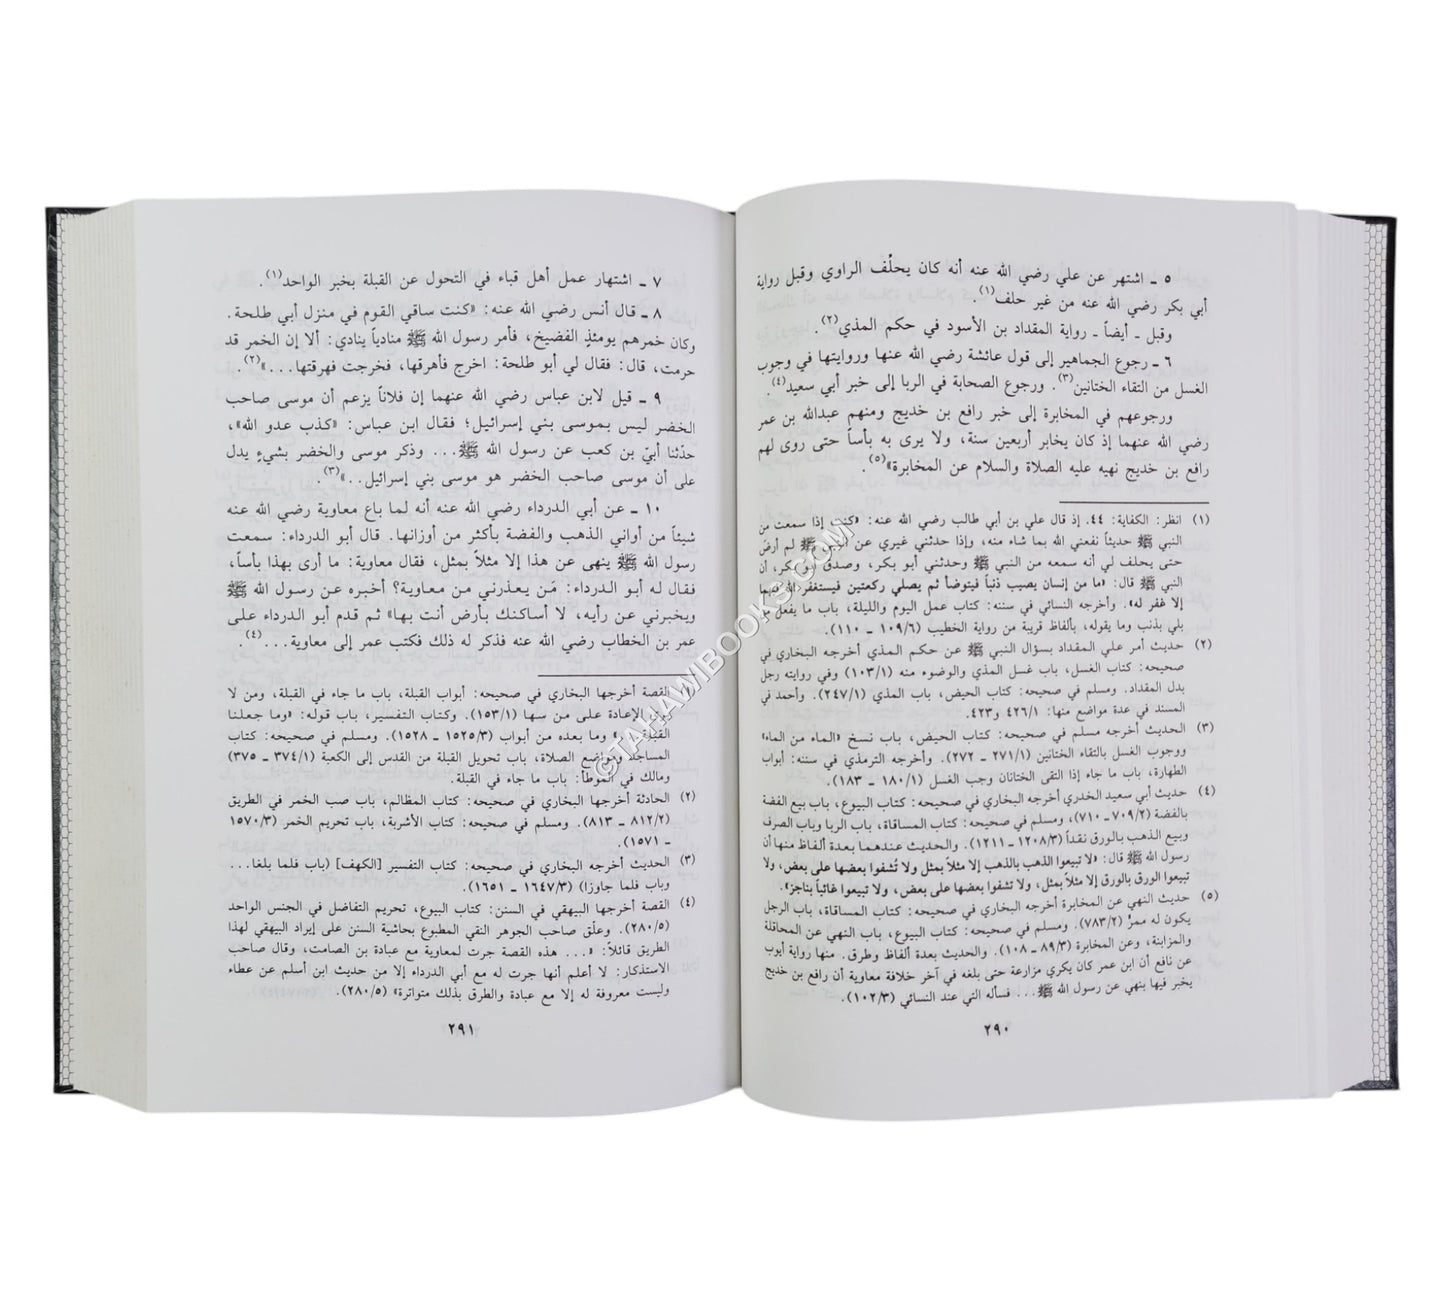 ٥ ـ اشتهر عن علي رضي الله عنه أنه كان يحلّف الراوي وقبل رواية
أبي بكر رضي الله عنه من غير حلف(١).
وقبل ـ أيضاً ـ رواية المقداد بن الأسود في حكم المذي(٢).
٦ ـ رجوع الجماهير إلى قول عائشة رضي الله عنها وروايتها في وجوب
الغسل من التقاء الختانين(٣). ورجوع الصحابة في الربا إلى خبر أبي سعيد(٤).
ورجوعهم في المخابرة إلى خبر رافع بن خديج ومنهم عبدالله بن عمر
رضي الله عنهما إذ كان يخابر أربعين سنة، ولا يرى به بأساً حتى روى لهم
رافع بن خديج نهيه عليه الصلاة والسلام عن المخابرة»(٥).
(١) انظر: الكفاية: ٤٤. إذ قال علي بن أبي طالب رضي الله عنه: «كنت إذا سمعت من
النبي ﷺ حديثاً نفعني الله بما شاء منه، وإذا حدثني غيري عن النبي ﷺ لم أرض
حتى يحلف لي أنه سمعه من النبي ﷺ وحدثني أبو بكر، وصدق أبو بكر، أن
النبي ﷺ قال: «ما من إنسان يصيب ذنباً فيتوضأ ثم يصلي ركعتين فيستغفر الله فيهما
إلا غفر له». وأخرجه النسائي في سننه: كتاب عمل اليوم والليلة، باب ما يفعل من
بلي بذنب وما يقوله، بألفاظ قريبة من رواية الخطيب (١٠٩/٦ ـ ١١٠).
(٢) حديث أمر علي المقداد بسؤال النبي ﷺ عن حكم المذي أخرجه البخاري في
صحيحه: كتاب الغسل، باب غسل المذي والوضوء منه (١٠٣/١) وفي روايته رجل
بدل المقداد. ومسلم في صحيحه: كتاب الحيض، باب المذي (٢٤٧/١). وأحمد في
المسند في عدة مواضع منها: ٤٢٦/١ و٤٢٣.
(٣) الحديث أخرجه مسلم في صحيحه: كتاب الحيض، باب نسخ «الماء من الماء»
ووجوب الغسل بالتقاء الختانين (٢٧١/١ ـ ٢٧٢). وأخرجه الترمذي في سننه: أبواب
الطهارة، باب ما جاء إذا التقى الختانان وجب الغسل (١٨٠/١ ـ ١٨٣).
(٤) حديث أبي سعيد الخدري أخرجه البخاري في صحيحه: كتاب البيوع، باب بيع الفضة
بالفضة (٧٠٩/٢ ـ ٧١٠)، ومسلم في صحيحه: كتاب المساقاة، باب الربا وباب الصرف
وبيع الذهب بالورق نقداً (١٢٠٨/٣ ـ ١٢١١). والحديث عندهما بعدة ألفاظ منها أن
رسول الله ﷺ قال: «لا تبيعوا الذهب بالذهب إلا مثلاً بمثل ولا تُشفوا بعضها على بعض، ولا
تبيعوا الورق بالورق إلا مثلاً بمثل، ولا تشفوا بعضها على بعض، ولا تبيعوا غائباً بناجز».
(٥) حديث النهي عن المخابرة أخرجه البخاري في صحيحه: كتاب المساقاة، باب الرجل
يكون له ممرٌ (٧٨٣/٢). ومسلم في صحيحه: كتاب البيوع، باب النهي عن المحاقلة
والمزابنة، وعن المخابرة (٨٩/٣ ـ ١٠٨). والحديث بعدة ألفاظ وطرق. منها رواية أيوب
عن نافع أن ابن عمر كان يكري مزارعة حتى بلغه في آخر خلافة معاوية أن رافع بن خديج
يخبر فيها بنهي عن رسول الله ﷺ... فسأله التي عند النسائي (١٠٢/٣).
٢٩٠
٧ ـ اشتهار عمل أهل قباء في التحول عن القبلة بخبر الواحد(١).
٨ ـ قال أنس رضي الله عنه: «كنت ساقي القوم في منزل أبي طلحة.
وكان خمرهم يومئذٍ الفضيخ، فأمر رسول الله ﷺ منادياً ينادي: ألا إن الخمر قد
حرمت، قال: فقال لي أبو طلحة: اخرج فأهرقها، فخرجت فهرقتها...»(٢).
٩ ـ قيل لابن عباس رضي الله عنهما إن فلاناً يزعم أن موسى صاحب
الخضر ليس بموسى بني إسرائيل؛ فقال ابن عباس: «كذب عدو الله»،
حدّثنا أبيّ بن كعب عن رسول الله ﷺ... وذكر موسى والخضر بشيءٍ يدل
على أن موسى صاحب الخضر هو موسى بني إسرائيل..»(٣).
١٠ ـ عن أبي الدرداء رضي الله عنه أنه لما باع معاوية رضي الله عنه
شيئاً من أواني الذهب والفضة بأكثر من أوزانها. قال أبو الدرداء: سمعت
رسول الله ﷺ ينهى عن هذا إلا مثلاً بمثل، فقال معاوية: ما أرى بهذا بأساً،
فقال له أبو الدرداء: مَن يعذرني من معاوية؟ أخبره عن رسول الله ﷺ
ويخبرني عن رأيه، لا أساكنك بأرض أنت بها» ثم قدم أبو الدرداء على
عمر بن الخطاب رضي الله عنه فذكر له ذلك فكتب عمر إلى معاوية...(٤).
القصة أخرجها البخاري في صحيحه: أبواب القبلة، باب ما جاء في القبلة، ومن لا
الإعادة على من سها (١٥٣/١). وكتاب التفسير، باب قوله: «وما جعلنا
القبلة وما بعده من أبواب (١٥٢٥/٣ ـ ١٥٢٨). ومسلم في صحيحه: كتاب
المساجد ومواضع الصلاة، باب تحويل القبلة من القدس إلى الكعبة (٣٧٤/١ ـ ٣٧٥)
ومالك في الموطأ: باب ما جاء في القبلة.
(٢) الحادثة أخرجها البخاري في صحيحه: كتاب المظالم، باب صب الخمر في الطريق
(٨١٢/٢ ـ ٨١٣). ومسلم في صحيحه: كتاب الأشربة، باب تحريم الخمر (١٥٧٠/٣
ـ ١٥٧١).
(٣) الحديث أخرجه البخاري في صحيحه: كتاب التفسير [الكهف] (باب فلما بلغا...
وباب فلما جاوزا) (١٦٤٧/٣ ـ ١٦٥١).
(٤) القصة أخرجها البيهقي في السنن: كتاب البيوع، تحريم التفاضل في الجنس الواحد
(٢٨٠/٥). وعلّق صاحب الجوهر النقي المطبوع بحاشية السنن على إيراد البيهقي لهذا
الطريق قائلاً: «... هذه القصة جرت لمعاوية مع عبادة بن الصامت، وقال صاحب
الاستذكار: لا أعلم أنها جرت له مع أبي الدرداء إلا من حديث ابن أسلم عن عطاء
وليست معروفة له إلا مع عبادة والطرق بذلك متواترة» (٢٨٠/٥).
٢٩١
© TAHAWIBOOKS.COM